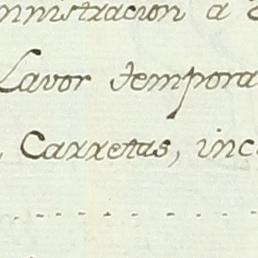 nnistracion a
Lavor tempora
Carretas, inc